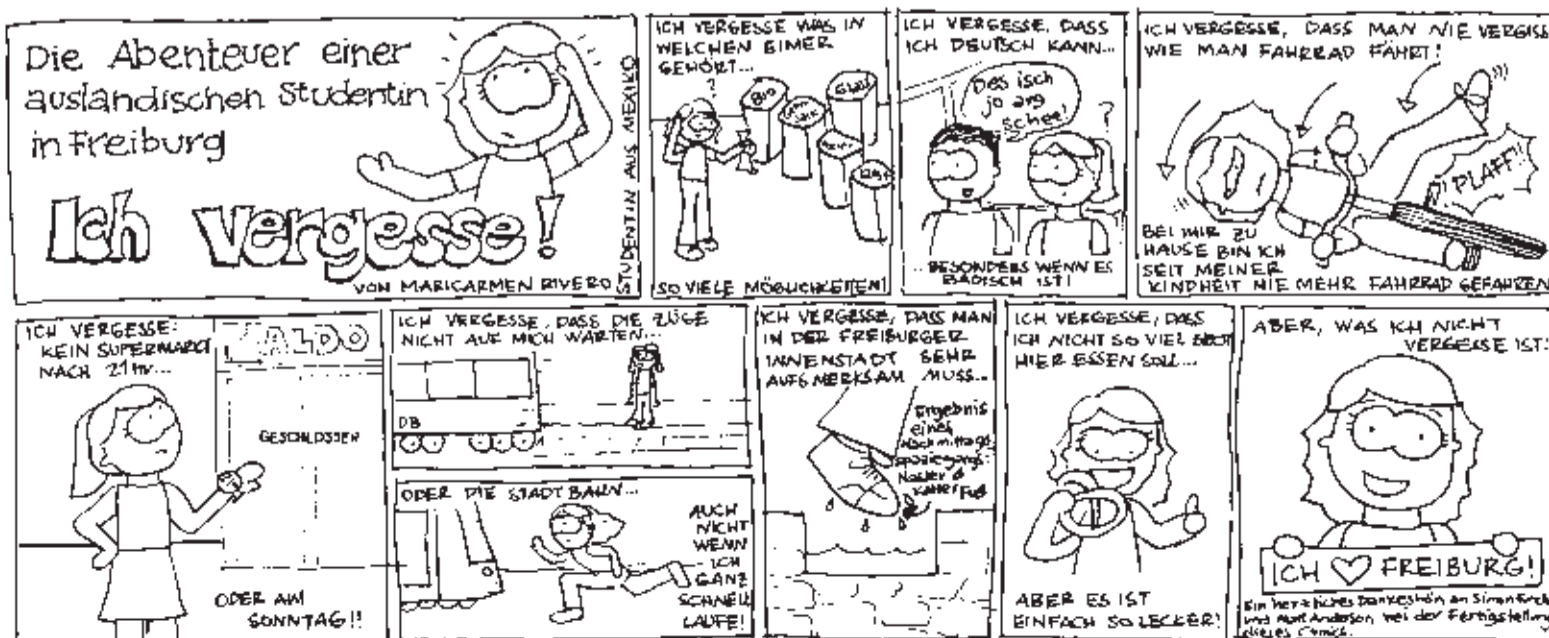 Die Abenteuer einer
ausländischen Studentin
in Freiburg
Ich vergesse!
VON MARICARMEN RIVERO
STUDENTIN AUS MEXIKO
ICH VERGESSE WAS IN
WELCHEN EIMER
GEHÖRT...
?
BIO
GLAS
SO VIELE MÖGLICHKEITEN!
ICH VERGESSE, DASS
ICH DEUTSCH KANN...
Des isch
jo arg
schee!
?
...BESONDERS WENN ES
BADISCH IST!
ICH VERGESSE, DASS MAN NIE VERGISS
WIE MAN FAHRRAD FÄHRT!
PLAFF!!
BEI MIR ZU
HAUSE BIN ICH
SEIT MEINER
KINDHEIT NIE MEHR FAHRRAD GEFAHREN
ICH VERGESSE:
KEIN SUPERMARKT
NACH 21hr...
ALDO
GESCHLOSSEN
ODER AM
SONNTAG!!
ICH VERGESSE, DASS DIE ZÜGE
NICHT AUF MICH WARTEN...
DB
ODER DIE STADTBAHN...
AUCH
NICHT
WENN
ICH
GANZ
SCHNELL
LAUFE!
ICH VERGESSE, DASS MAN
IN DER FREIBURGER
INNENSTADT SEHR
AUFSMERKSAM MUSS...
Ergebnis
eines
Nachmittags
spaziergangs:
Nasser &
kalter Fuß
ICH VERGESSE, DASS
ICH NICHT SO VIEL BROT
HIER ESSEN SOLL...
ABER ES IST
EINFACH SO LECKER!
ABER, WAS ICH NICHT
VERGESSE IST:
ICH ♡ FREIBURG!
Ein herzliches Dankeschön an Simon
und Anderson, bei der Fertigstellung
dieses Comics.